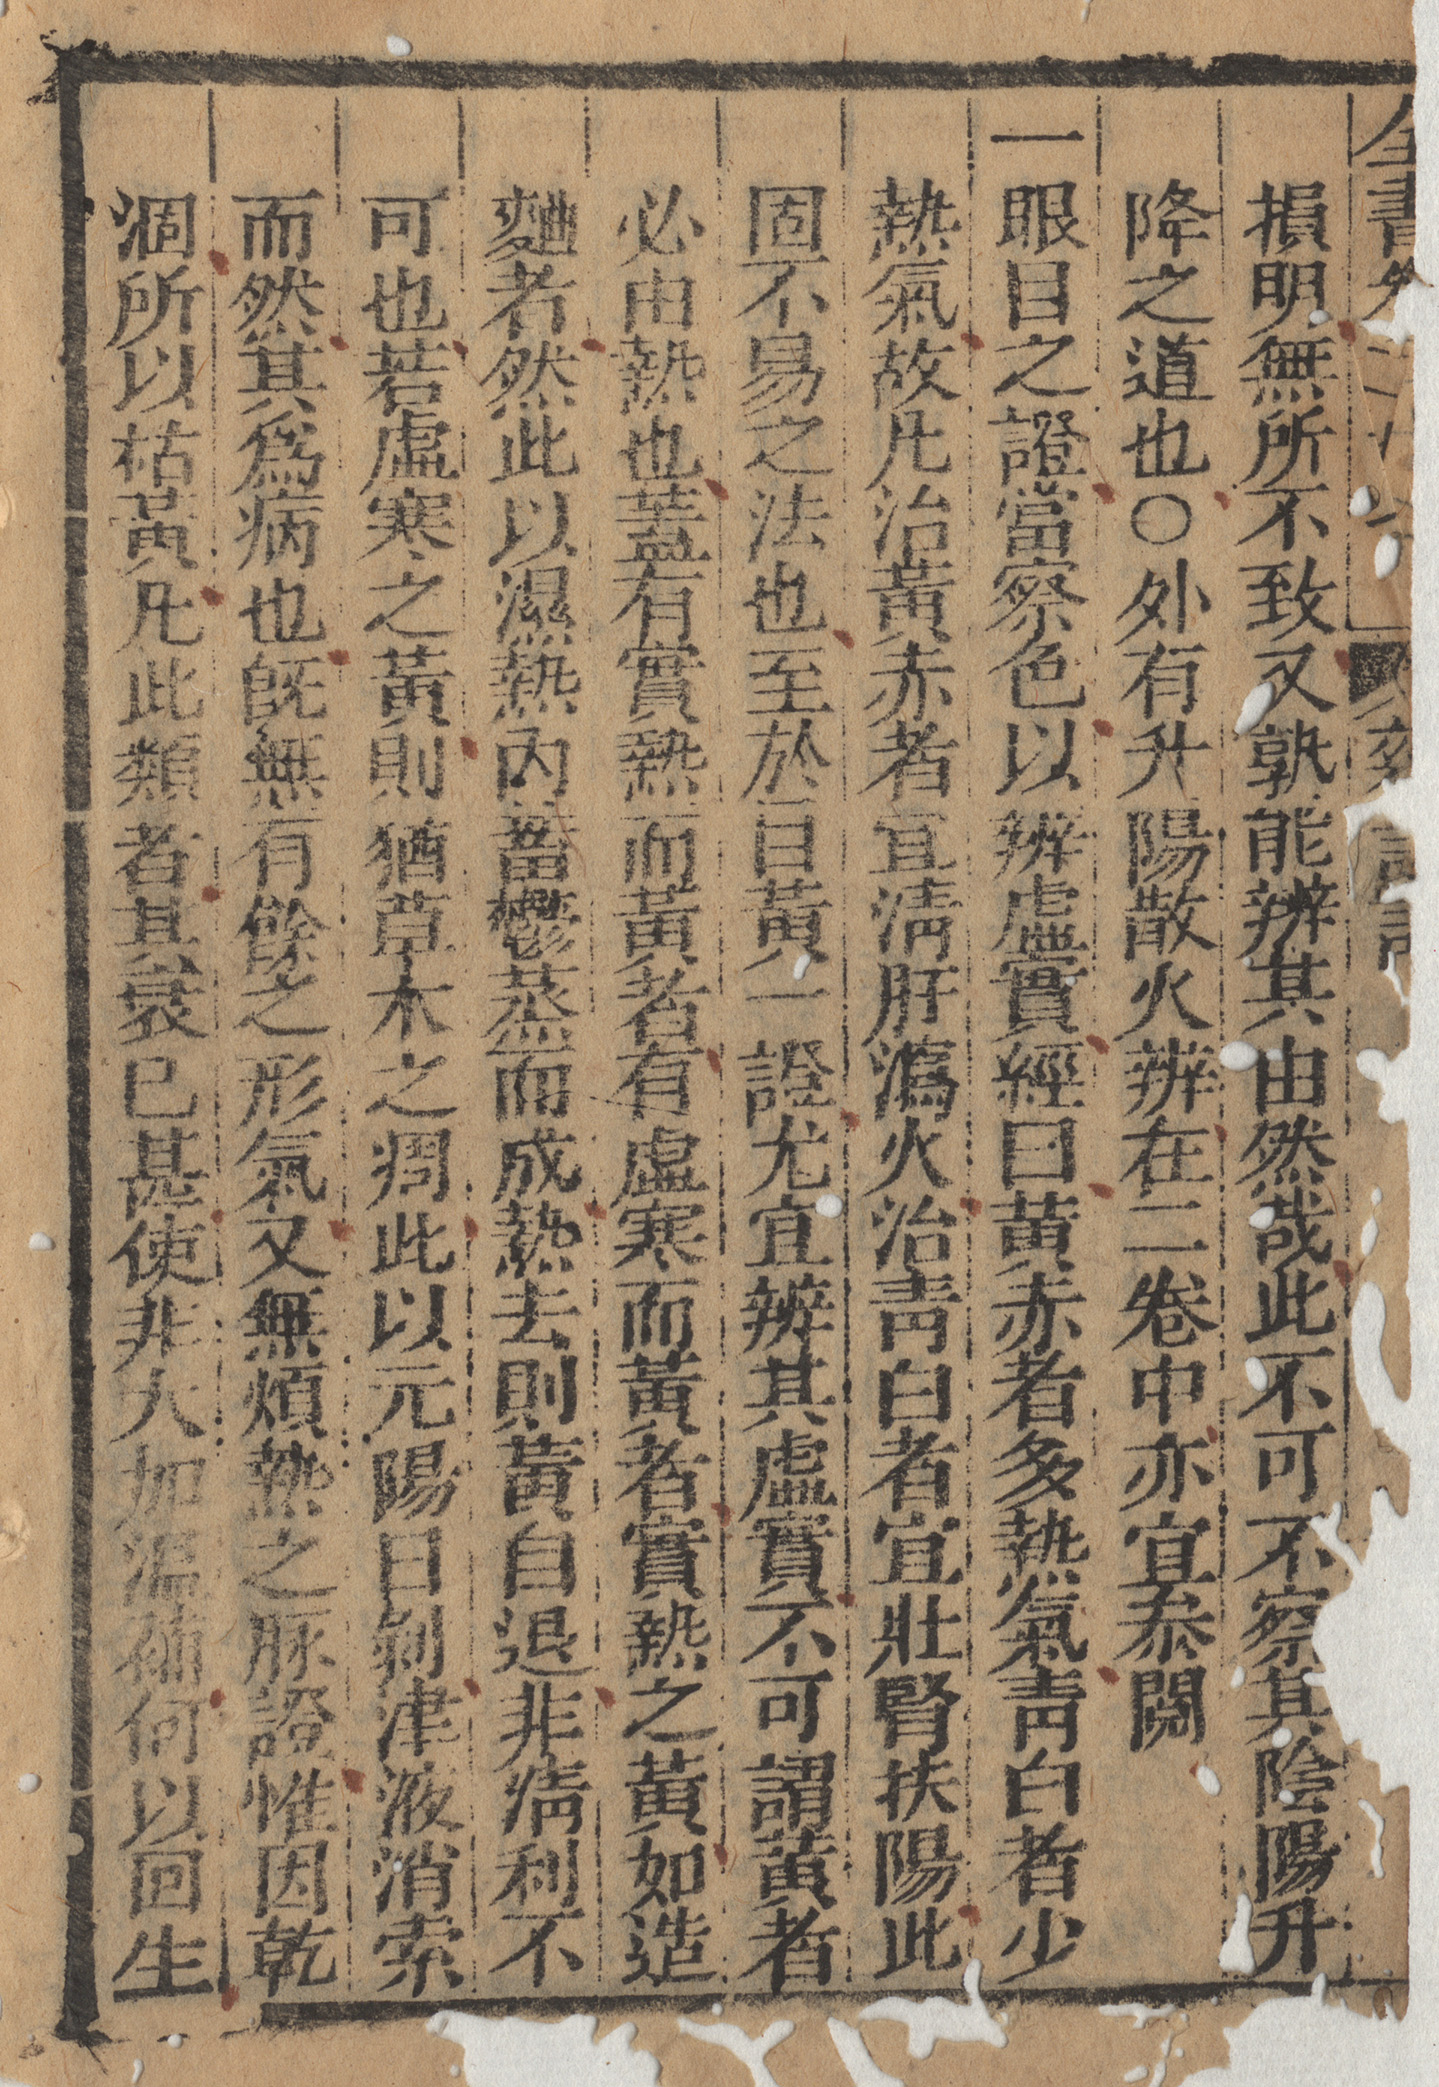 全書
損明無所不致又孰能辨其由然哉此不可不察其陰陽升
降之道也○外有升陽散火辨在二卷中亦宜叅閱
一眼目之證當察色以辨虛實經曰黃赤者多熱氣靑白者少
熱氣故凡治黃赤者宜淸肝瀉火治靑白者宜壯腎扶陽此
固不易之法也至於目黃一證尤宜辨其虛實不可謂黃者
必由熱也葢有實熱而黃者有虛寒而黃者實熱之黃如造
麯者然此以濕熱內蓄鬱蒸而成熱去則黃自退非淸利不
可也若虛寒之黃則猶草木之凋此以元陽日剝津液消索
而然其爲病也旣無有餘之形氣又無煩熱之脉證惟因乾
涸所以枯黃凡此類者其衰已甚使非大加溫補何以回生